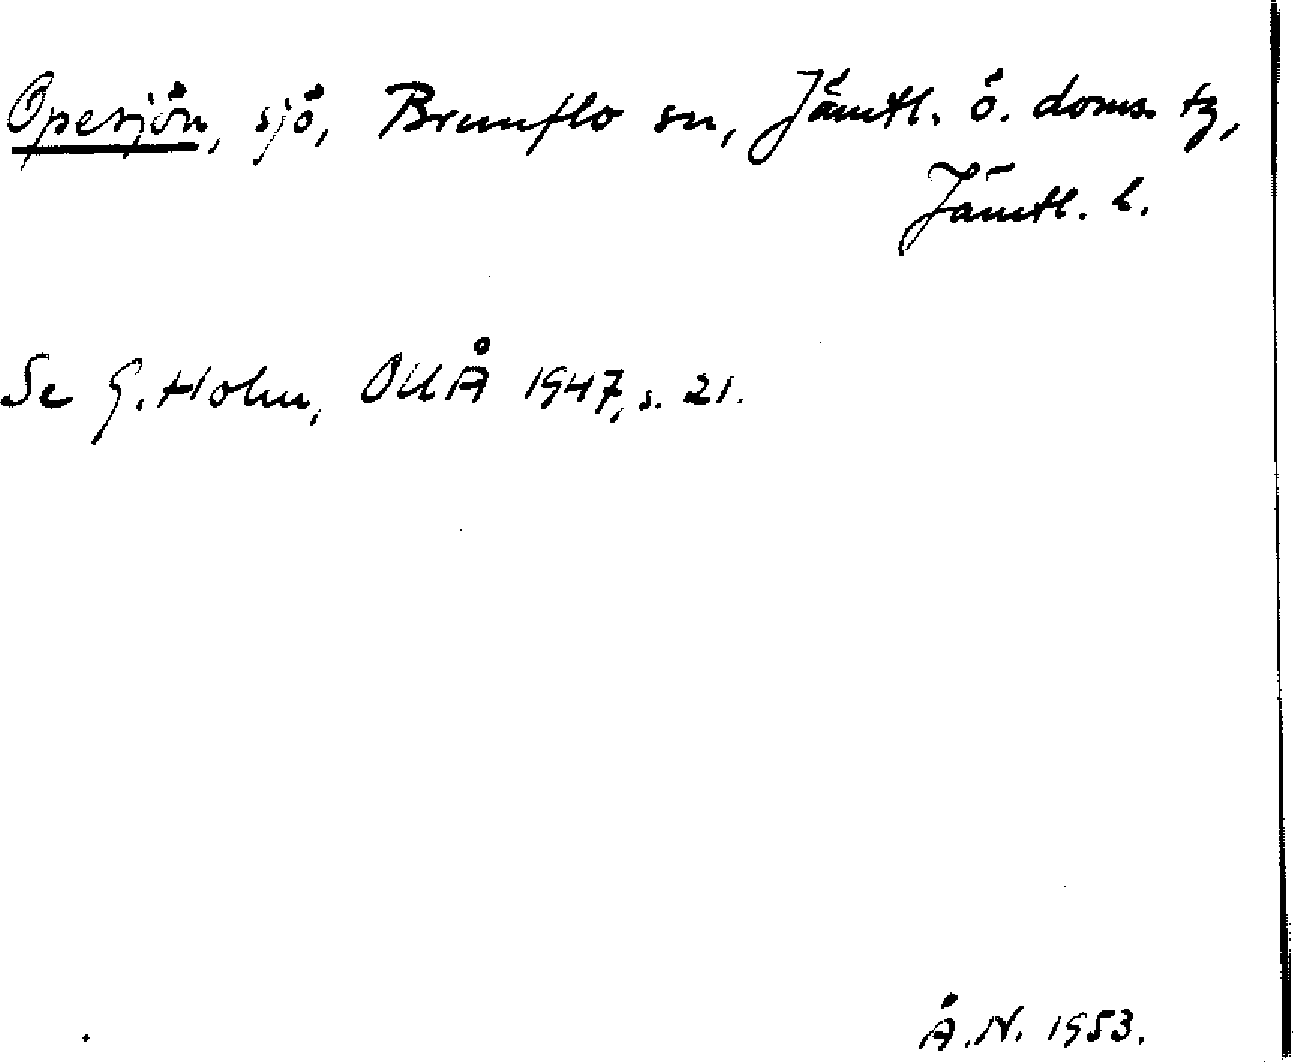 Opesjön, sjö, Brunflo sn, Jämtl. ö. doms. tg,
Jämtl. l.
Se G. Holm, OUÅ 1947, s. 21.
Å.N. 1953.